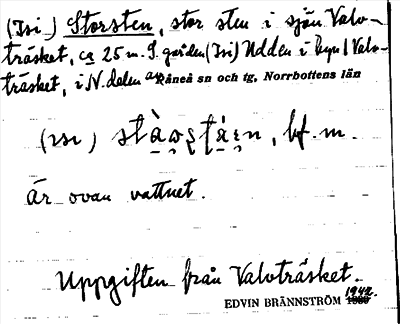 (Isi) Storsten, stor sten i sjön Valv-
träsket, ca 25 m. S. gården (Isi) Udden i byn Valv-
träsket, i N. delen av Råneå sn och tg, Norrbottens län
(ısı) bf. m.
Är ovan vattnet.
Uppgiften från Valvträsket.
1942.
EDVIN BRÄNNSTRÖM 1930